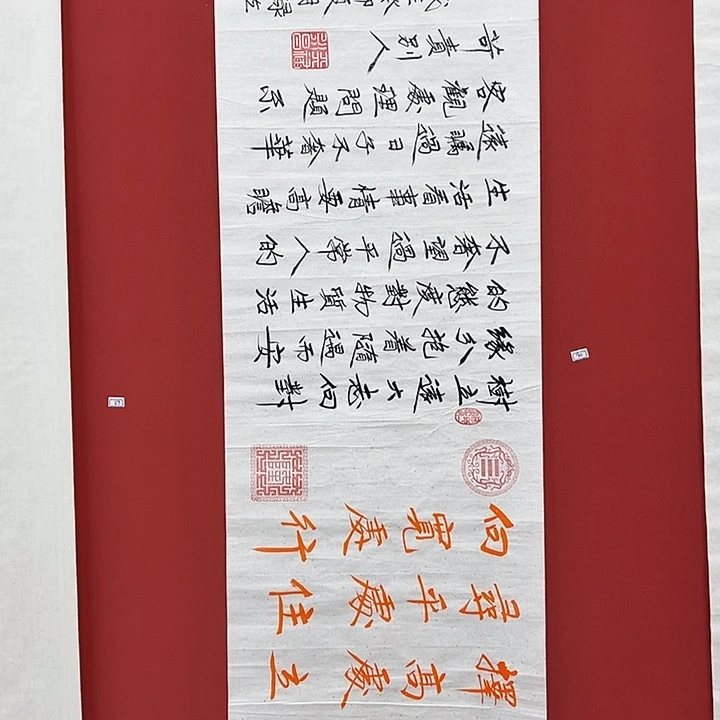 擇高處立
尋平處住
向寬處行
樹立遠大志向對
緣分抱着隨遇而安
的態度對物質生活
不奢望過平常人的
生活看事情要高瞻
遠矚過日子不奢華
客觀處理問題不
苛責別人
癸卯夏月録